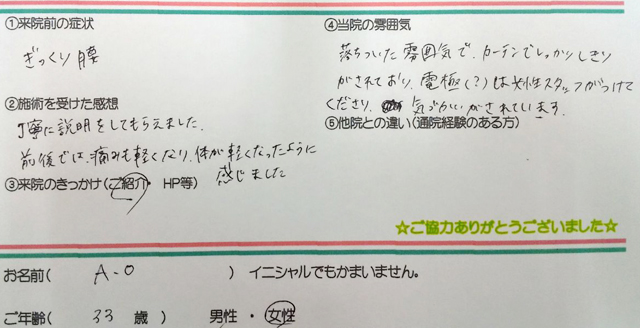 ①来院前の症状
ぎっくり腰
②施術を受けた感想
丁寧に説明をしてもらえました。
前後では、痛みも軽くなり、体が軽くなったように
感じました
③来院のきっかけ(ご紹介・ HP等)
④当院の雰囲気
落ちついた雰囲気で、カーテンでしっかりしきり
がされており、電極(?)は女性スタッフがつけて
くださり、気づかいがされています。
⑤他院との違い(通院経験のある方)
☆ご協力ありがとうございました☆
お名前( A-O ) イニシャルでもかまいません。
ご年齢( 33 歳 ) 男性 ・ 女性